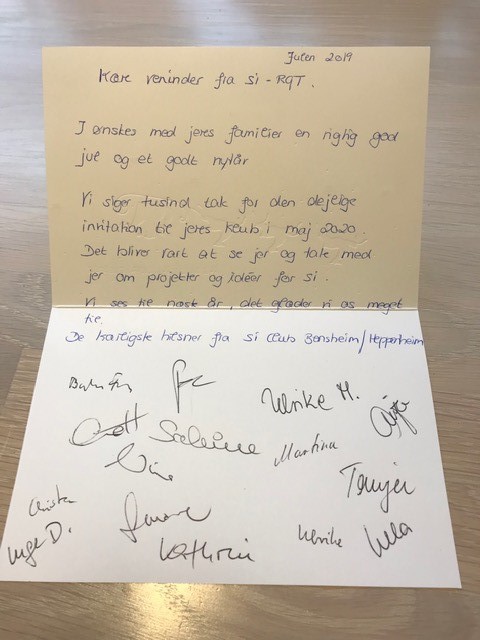 Julen 2019
Kære veninder fra SI - RQT.
I ønskes med jeres familier en rigtig god
jul og et godt nytår
Vi siger tusind tak for den dejlige
invitation til jeres klub i maj 2020.
Det bliver rart at se jer og tale med
jer om projekter og idéer for SI.
Vi ses til næste år, det glæder vi os meget
til.
De kærligste hilsner fra SI Club Bensheim/Heppenheim
Ulrike M.
Sabine
Martina
Tanja
Christa
Inge D.
Kathrin
Ulrike